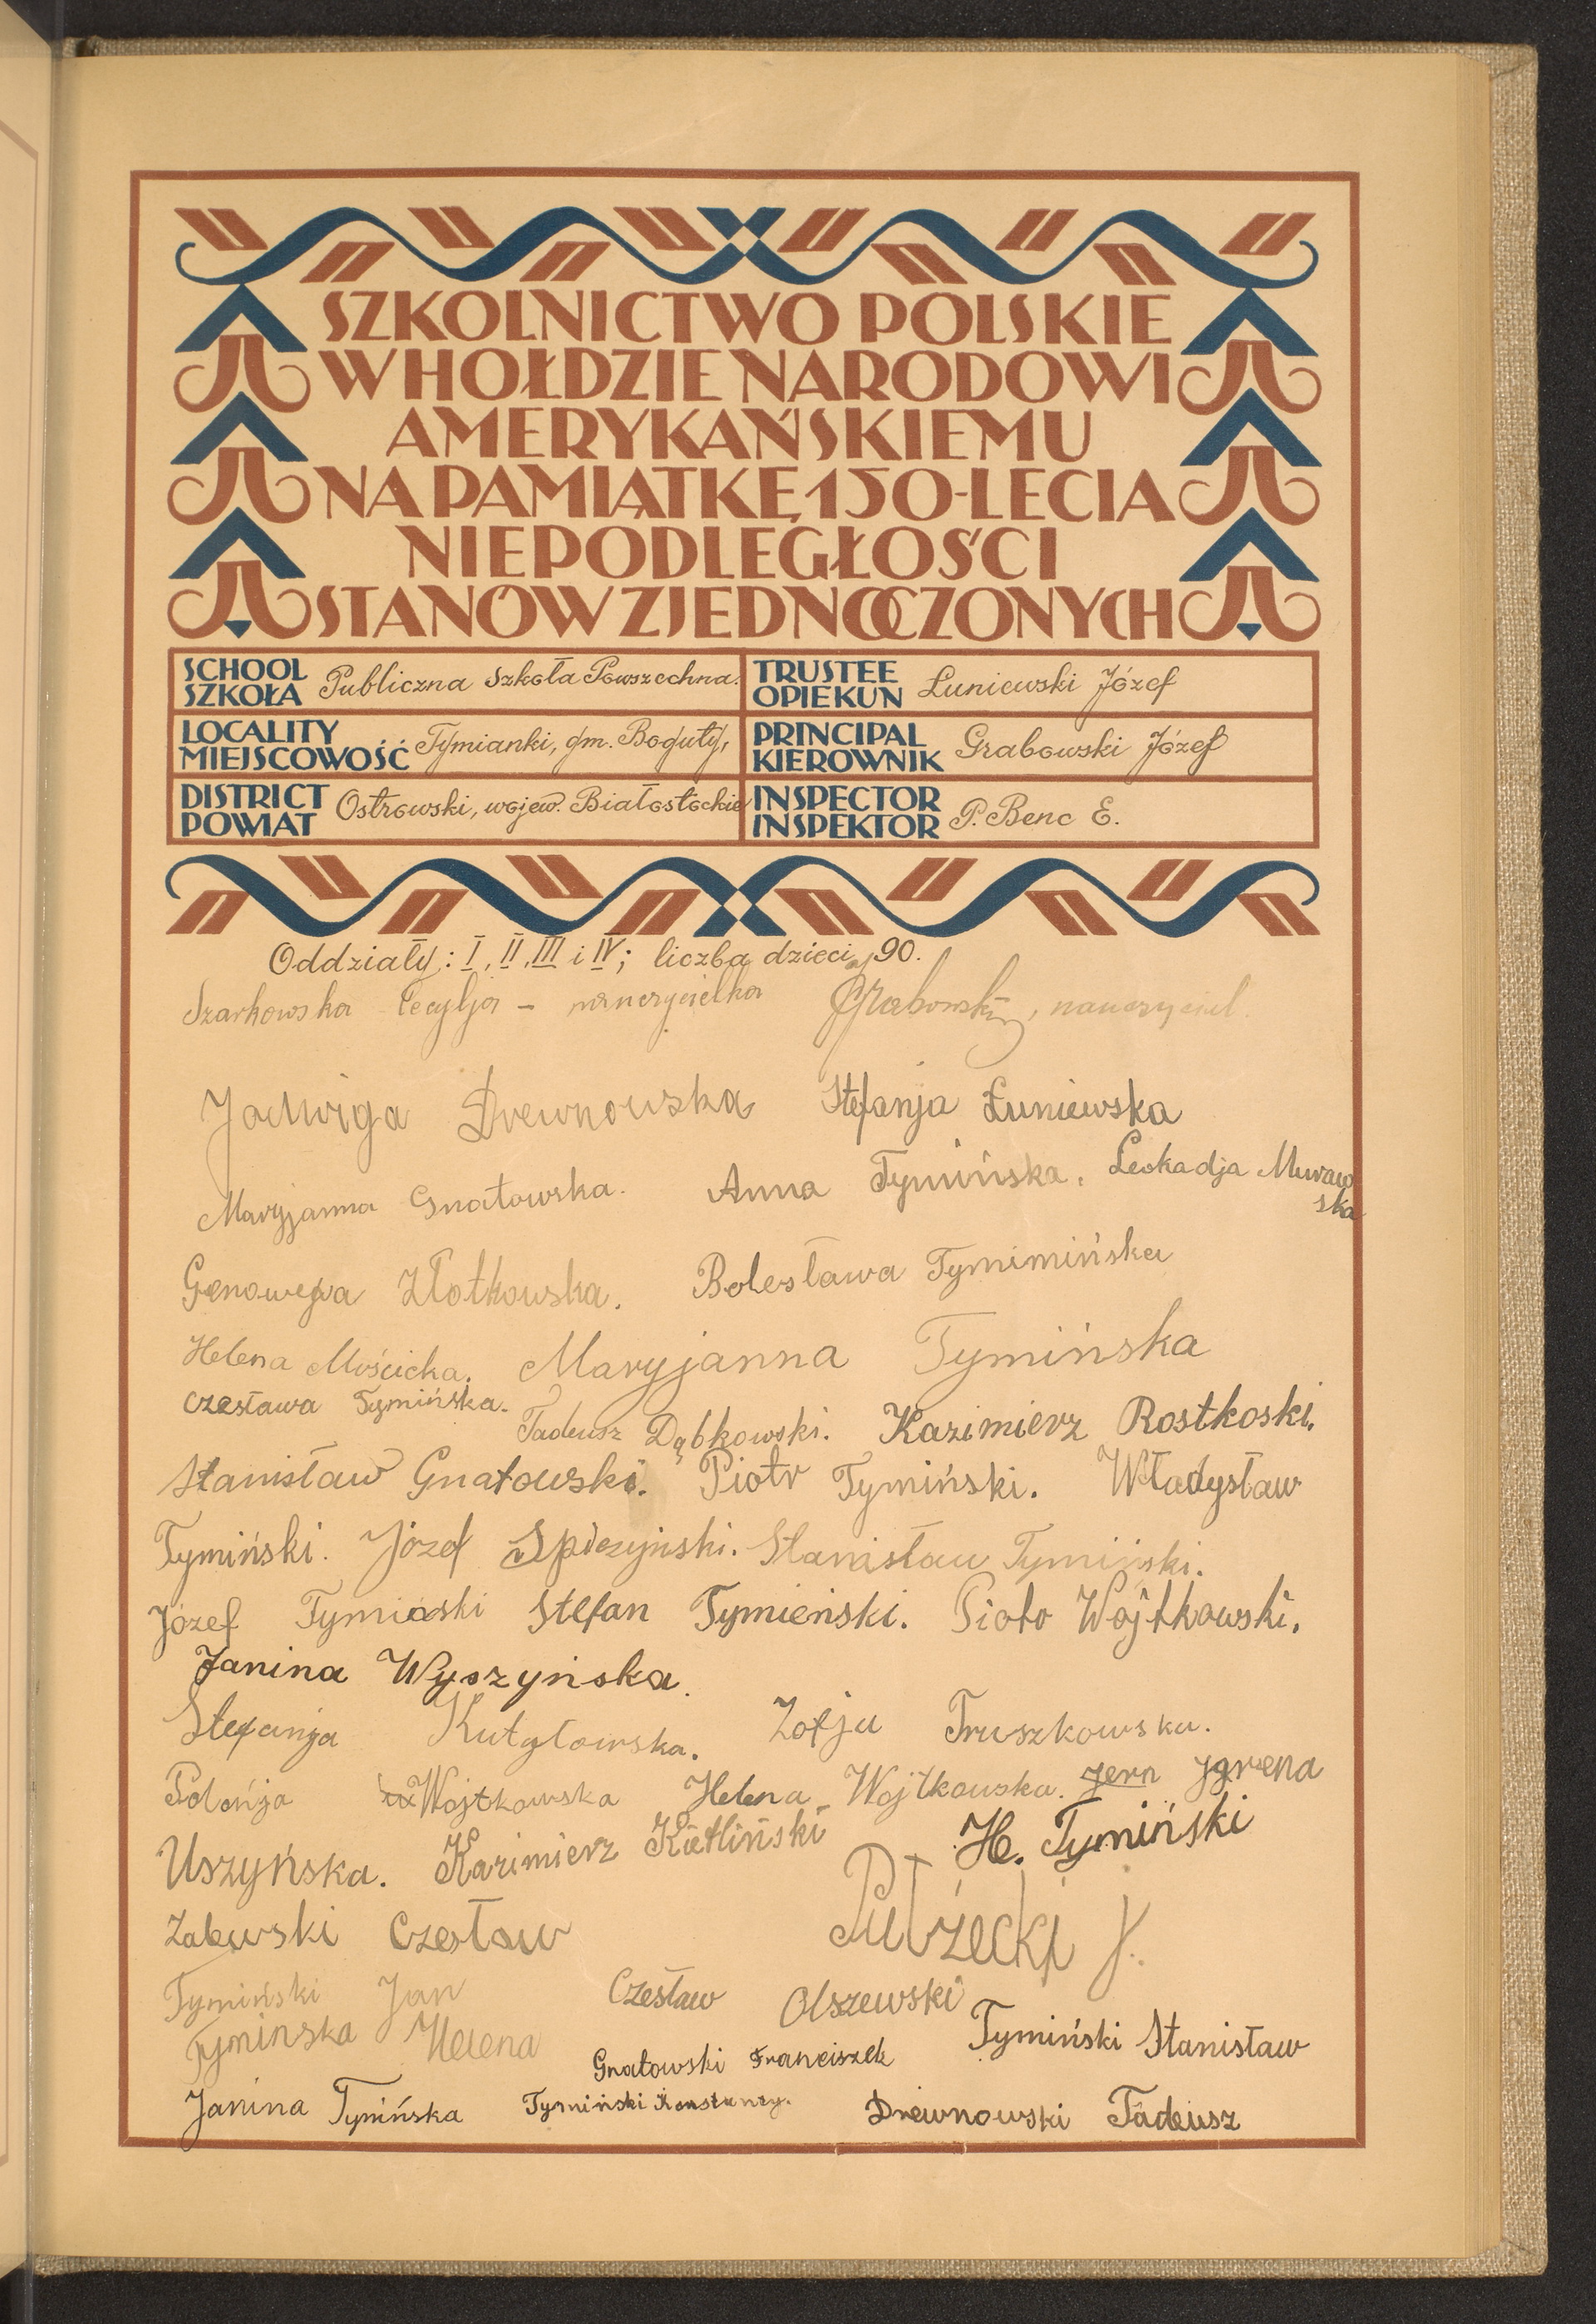 SZKOLNICTWO POLSKIE
W HOŁDZIE NARODOWI
AMERYKAŃSKIEMU
NA PAMIĄTKĘ 150-LECIA
NIEPODLEGŁOŚCI
STANÓW ZJEDNOCZONYCH
SCHOOL SZKOŁA Publiczna Szkoła Powszechna.
TRUSTEE OPIEKUN Łuniewski Józef
LOCALITY MIEJSCOWOŚĆ Tymianki, gm. Boguty,
PRINCIPAL KIEROWNIK Grabowski Józef
DISTRICT POWIAT Ostrowski, wojew. Białostockie
INSPECTOR INSPEKTOR P. Benc E.
Oddziały: I, II, III i IV; liczba dzieci 90.
Szarkowska Cecylja - nauczycielka Grabowski, nauczyciel.
Jadwiga Drewnowska Stefanja Łuniewska
Maryjanna Gnatowska. Anna Tymińska. Leokadja Murawska
Genowefa Złotkowska. Bolesława Tymimińska
Helena Mościcka. Maryjanna Tymińska
Czesława Tymińska. Tadeusz Dąbkowski. Kazimierz Rostkoski.
Stanisław Gnatowski. Piotr Tymiński. Władysław
Tymiński. Józef Spiczyński. Stanisław Tymiński.
Józef Tymiński Stefan Tymieński. Piotr Wojtkowski.
Janina Wyszyńska.
Stefanja Kutyłowska. Zofja Truszkowska.
Polonja Wojtkowska Helena Wojtkowska. Jern Jgrena
Uszyńska. Kazimierz Kietliński H. Tymiński
Zalewski Czesław J.
Tymiński Jan Czesław Olszewski
Tymińska Helena Gnatowski Franciszek Tymiński Stanisław
Janina Tymińska Tymiński Konstanty. Drewnowski Tadeusz